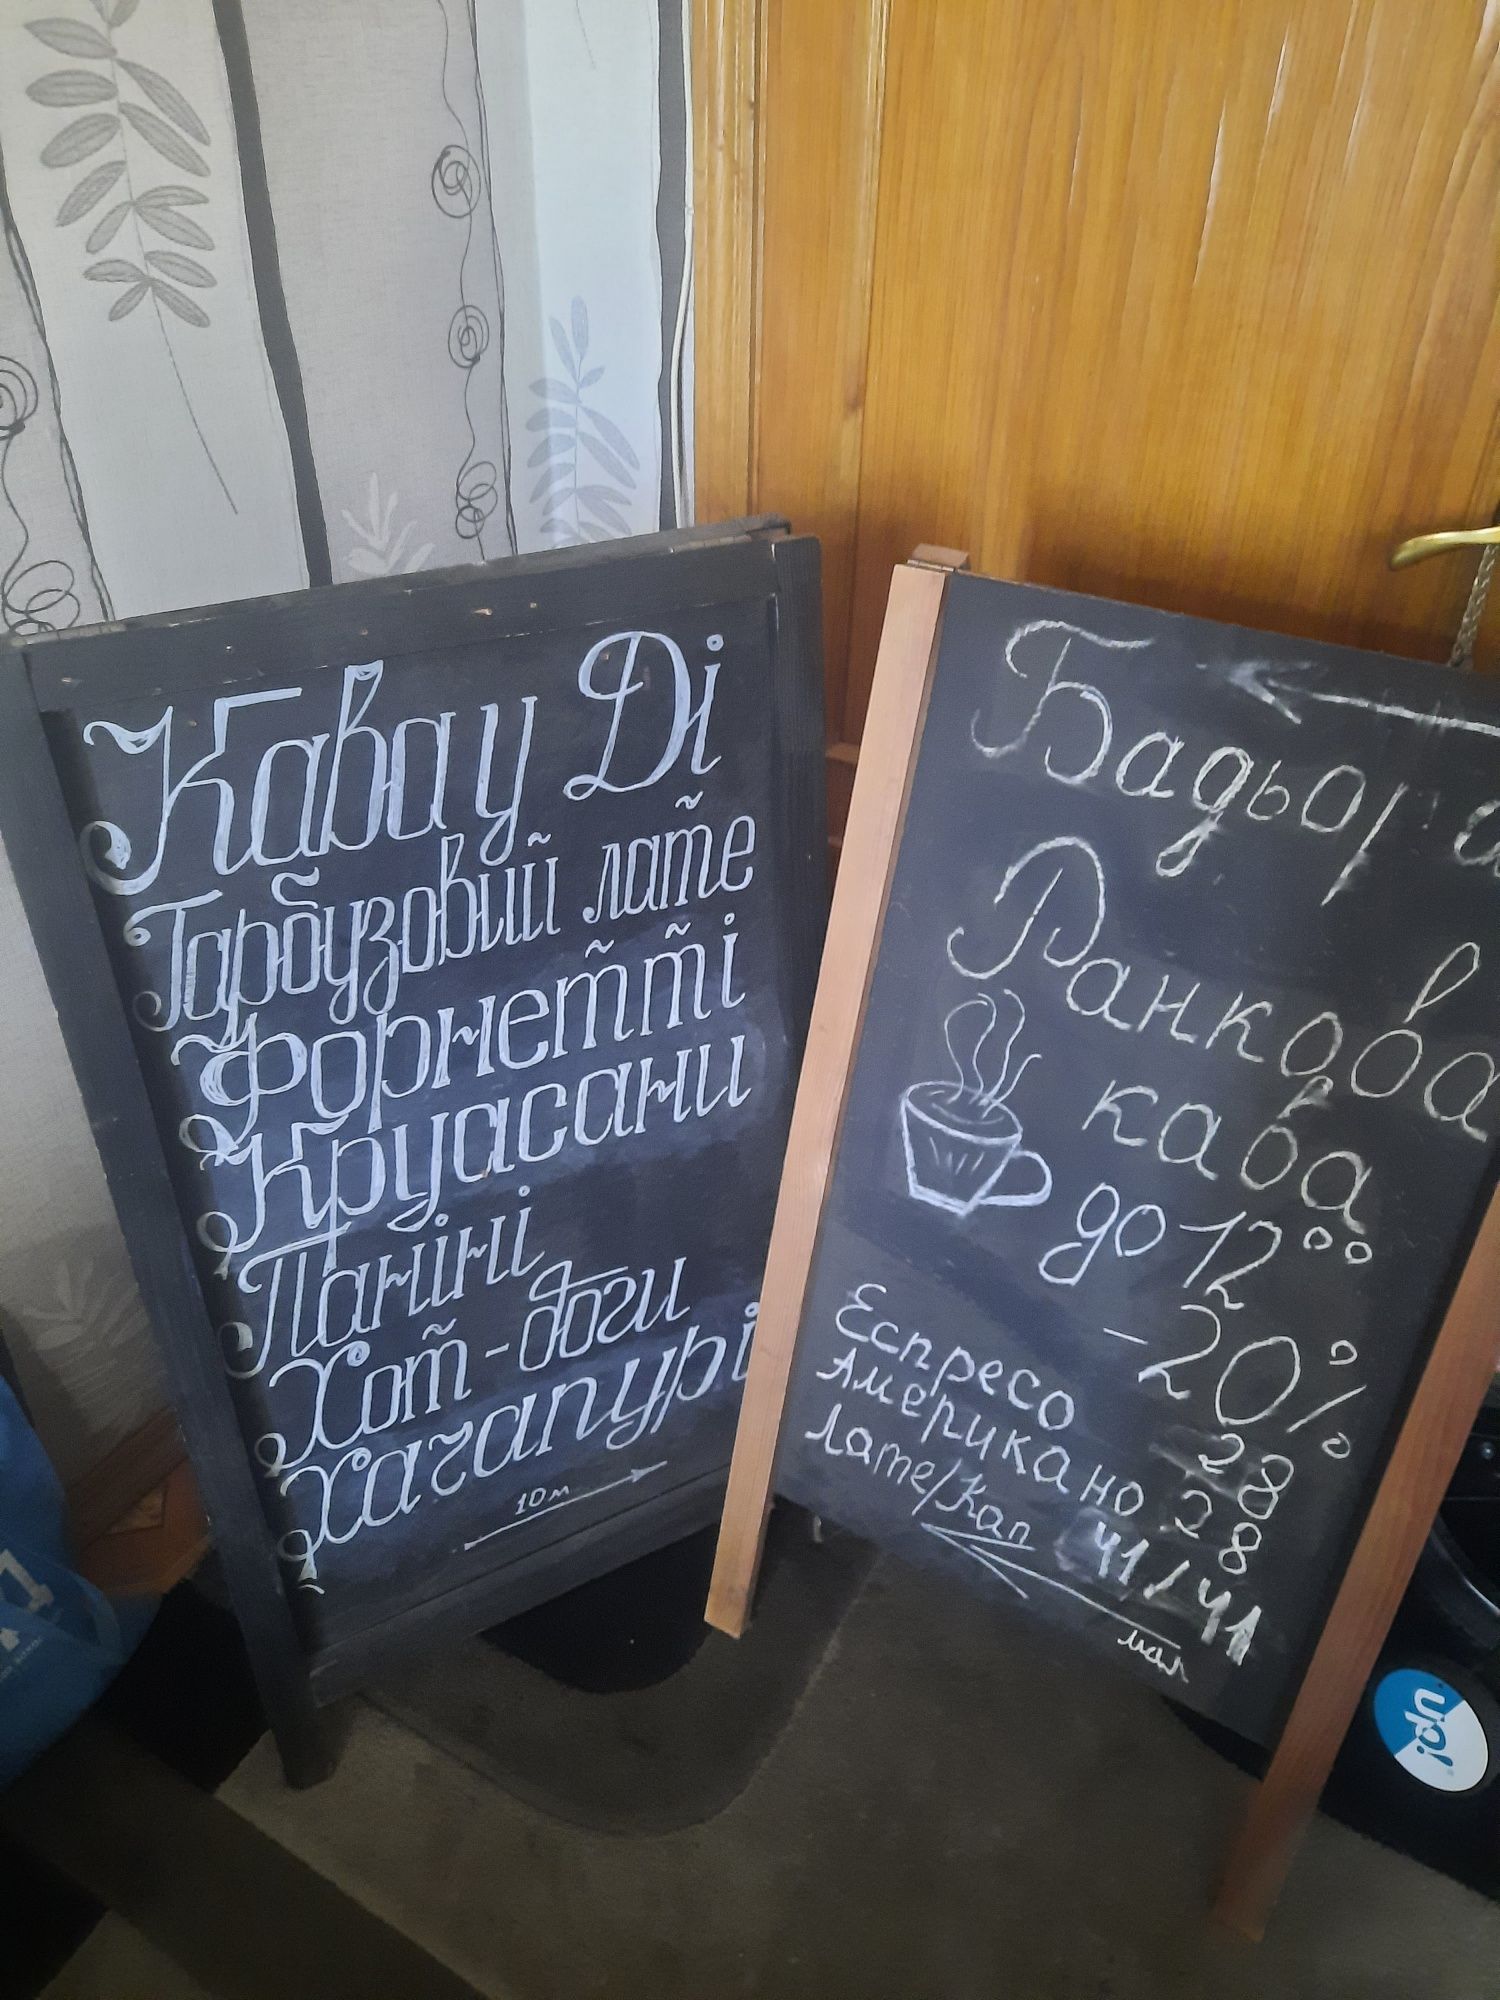 Кава у Ді
Гарбузовий лате
Форнетті
Круасани
Паніні
Хот-доги
Хачапурі
10м
Ранкова
кава
до 12⁰⁰
-20%
Еспресо 28
Американо 28
Лате/Кап 41/41
up!